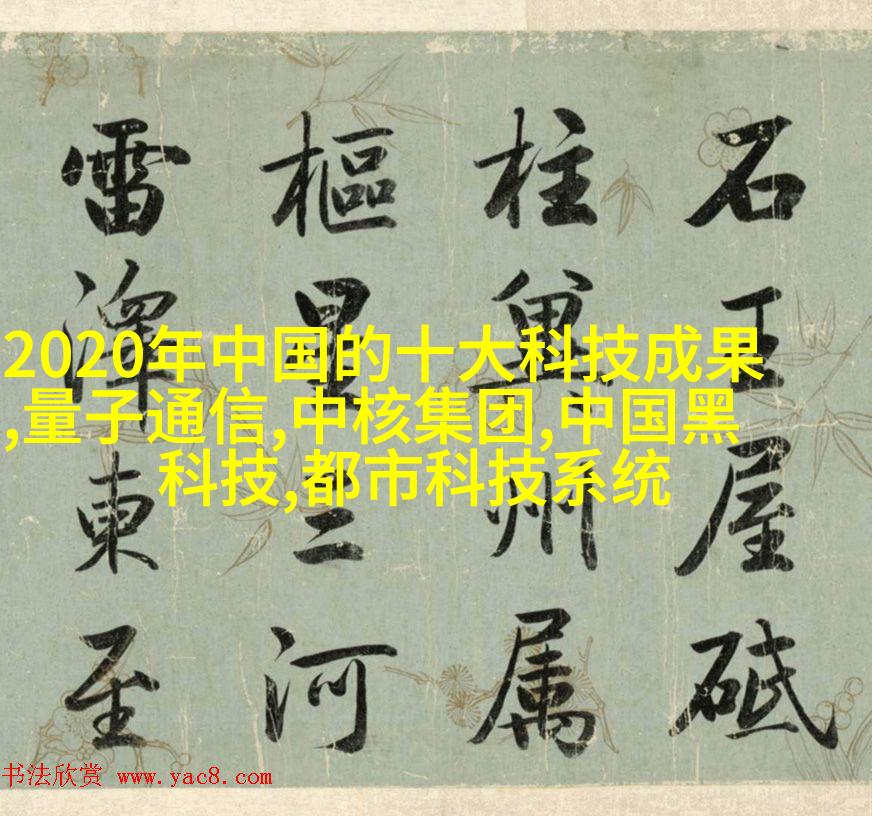 石王屋砥
柱冀州属
樞星三河
雷澤東至
2020年中国的十大科技成果
,量子通信,中核集团,中国黑
科技,都市科技系统
书法欣赏 www.yac8.com